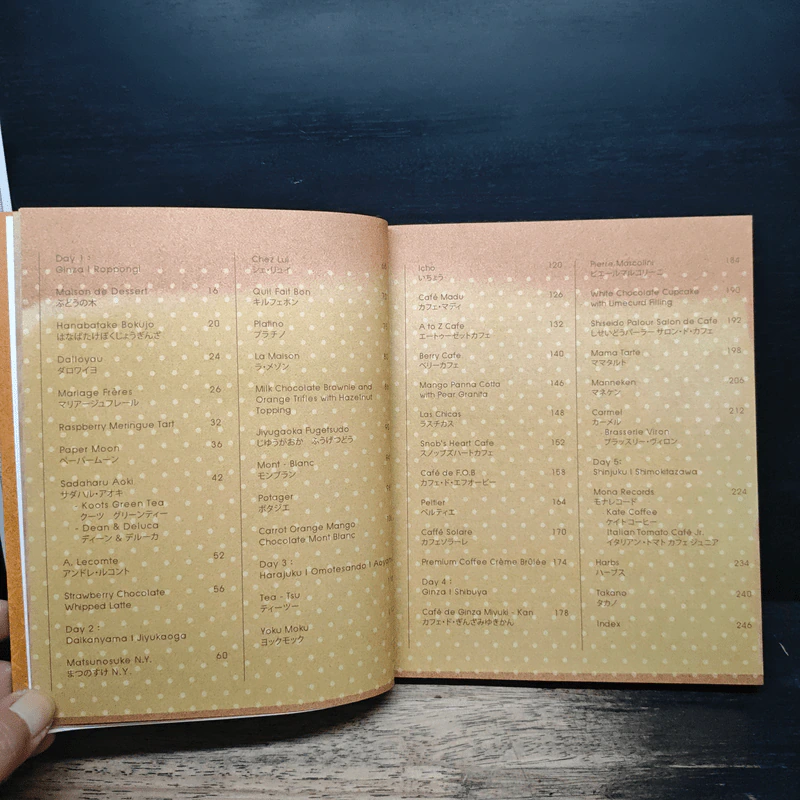 Day 1 :
Ginza I Roppongi
Maison de Dessert 16
ぶどうの木
Hanabatake Bokujo 20
はなばたけぼくじょうぎんざ
Dalloyau 24
ダロワイヨ
Mariage Frères 26
マリアージュフレール
Raspberry Meringue Tart 32
Paper Moon 36
ペーパームーン
Sadaharu Aoki 42
サダハル・アオキ
- Koots Green Tea
クーツ グリーンティー
- Dean & Deluca
ディーン & デルーカ
A. Lecomte 52
アンドレ・ルコント
Strawberry Chocolate 56
Whipped Latte
Day 2 :
Daikanyama I Jiyukaoga
Matsunosuke N.Y. 60
まつのすけ N.Y.
Chez Lui
シェ・リュイ
Quil Fait Bon
キルフェボン
Platino
プラチノ
La Maison
ラ・メゾン
Milk Chocolate Brownie and
Orange Trifles with Hazelnut
Topping
Jiyugaoka Fugetsudo
じゆうがおか ふうげつどう
Mont - Blanc
モンブラン
Potager
ポタジエ
Carrot Orange Mango
Chocolate Mont Blanc
Day 3 :
Harajuku I Omotesando I
Tea - Tsu
ティーツー
Yoku Moku
ヨックモック
Icho 120
いちょう
Café Madu 126
カフェ・マディ
A to Z Cafe 132
エートゥーゼットカフェ
Berry Cafe 140
ベリーカフェ
Mango Panna Cotta 146
with Pear Granita
Las Chicas 148
ラスチカス
Snob's Heart Cafe 152
スノッブズハートカフェ
Café de F.O.B 158
カフェ・ド・エフオービー
Peltier 164
ペルティエ
Caffé Solare 170
カフェソラーレ
Premium Coffee Crème Brûlée 174
Day 4 :
Ginza I Shibuya
Café de Ginza Miyuki - Kan 178
カフェ・ド・ぎんざみゆきかん
Pierre Marcolini 184
ピエールマルコリーニ
White Chocolate Cupcake 190
with Limecurd Filling
Shiseido Palour Salon de Cafe 192
しせいどうパーラー サロン・ド・カフェ
Mama Tarte 198
ママタルト
Manneken 206
マネケン
Carmel 212
カーメル
- Brasserie Viron
ブラッスリー・ヴィロン
Day 5:
Shinjuku I Shimokitazawa
Mona Records 224
モナレコード
Kate Coffee
ケイトコーヒー
Italian Tomato Café Jr.
イタリアン・トマト カフェ ジュニア
Harbs 234
ハーブス
Takano 240
タカノ
Index 246